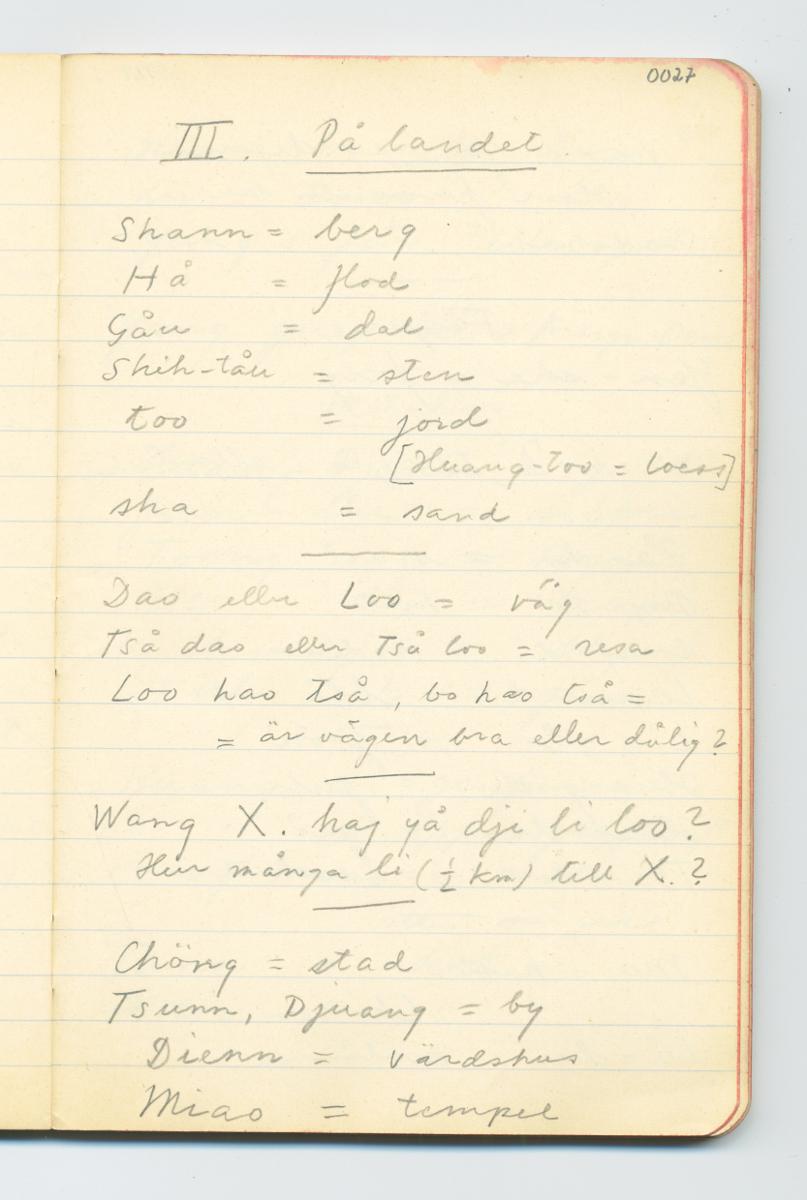 0027
III. På landet
Shann = berg
Hå = flod
Gåu = dal
Shih-tåu = sten
too = jord
[Huang-too = loess]
sha = sand
Dao eller Loo = väg
Tså dao eller Tså loo = resa
Loo hao tså, bo hao tså =
= är vägen bra eller dålig?
Wang X. haj yå dji li loo?
Hur många li (½ km) till X.?
Chöng = stad
Tsunn, Djuang = by
Dienn = värdshus
Miao = tempel